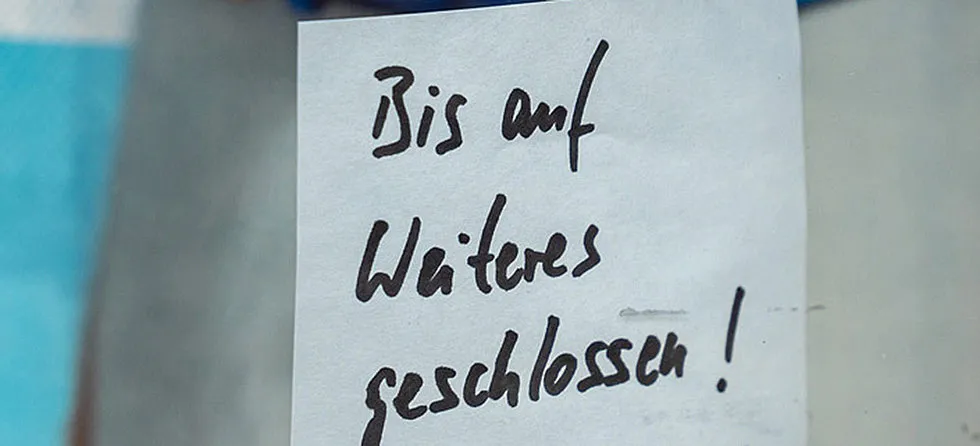 Bis auf
Weiteres
geschlossen!